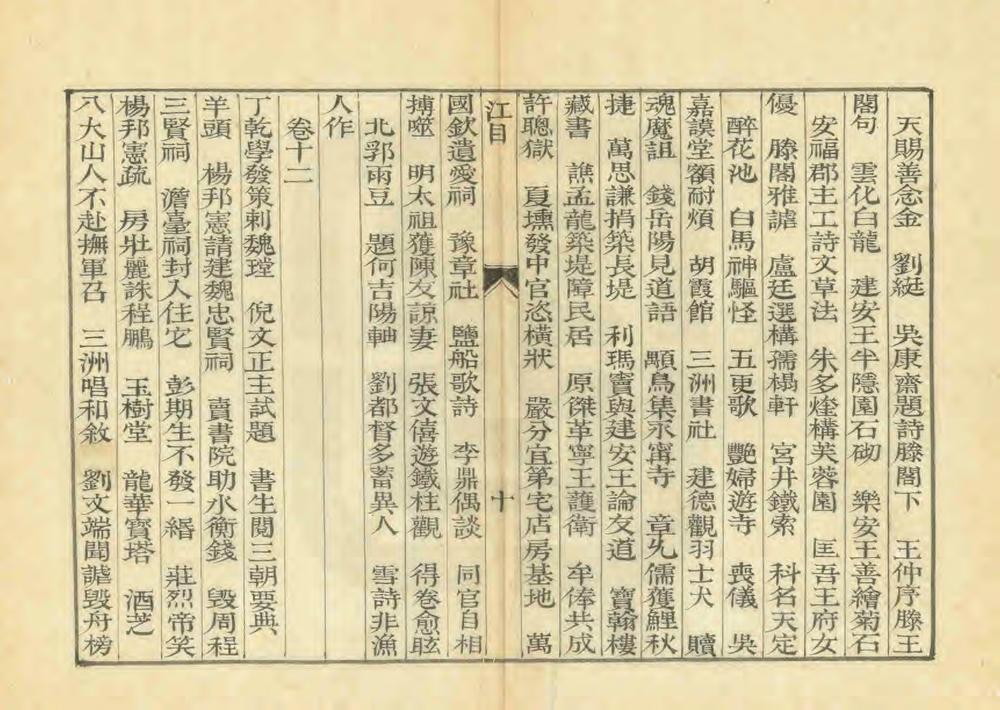 天賜善念金　劉綎　吳康齋題詩滕閣下　王仲序滕王
閣句　雲化白龍　建安王半隱園石砌　樂安王善繪菊石
安福郡主工詩文草法　朱多煃構芙蓉園　匡吾王府女
優　滕閣雅謔　盧廷選構孺榻軒　宮井鐵索　科名天定
醉花池　白馬神驅怪　五更歌　艷婦遊寺　喪儀　吳
嘉謨堂額耐煩　胡霞館　三洲書社　建德觀羽士犬　贖
魂魔詛　錢岳陽見道語　顒鳥集永寗寺　章允儒獲鯉秋
捷　萬思謙捐築長堤　利瑪竇與建安王論友道　寶翰樓
藏書　譙孟龍築堤障民居　原傑革寧王護衛　牟俸共成
許聰獄　夏壎發中官恣橫狀　嚴分宜第宅店房基地　萬
江目　十
國欽遺愛祠　豫章社　鹽船歌詩　李鼎偶談　同官自相
搏噬　明太祖獲陳友諒妻　張文僖遊鐵柱觀　得卷愈眩
北郭雨豆　題何吉陽軸　劉都督多蓄異人　雪詩非漁
人作
卷十二
丁乾學發策刺魏璫　倪文正主試題　書生閱三朝要典
羊頭　楊邦憲請建魏忠賢祠　賣書院助水衡錢　毁周程
三賢祠　澹臺祠封入住宅　彭期生不發一緡　莊烈帝笑
楊邦憲疏　房壯麗誅程鵬　玉樹堂　龍華寶塔　酒芝
八大山人不赴撫軍召　三洲唱和敘　劉文端聞謠毁舟榜